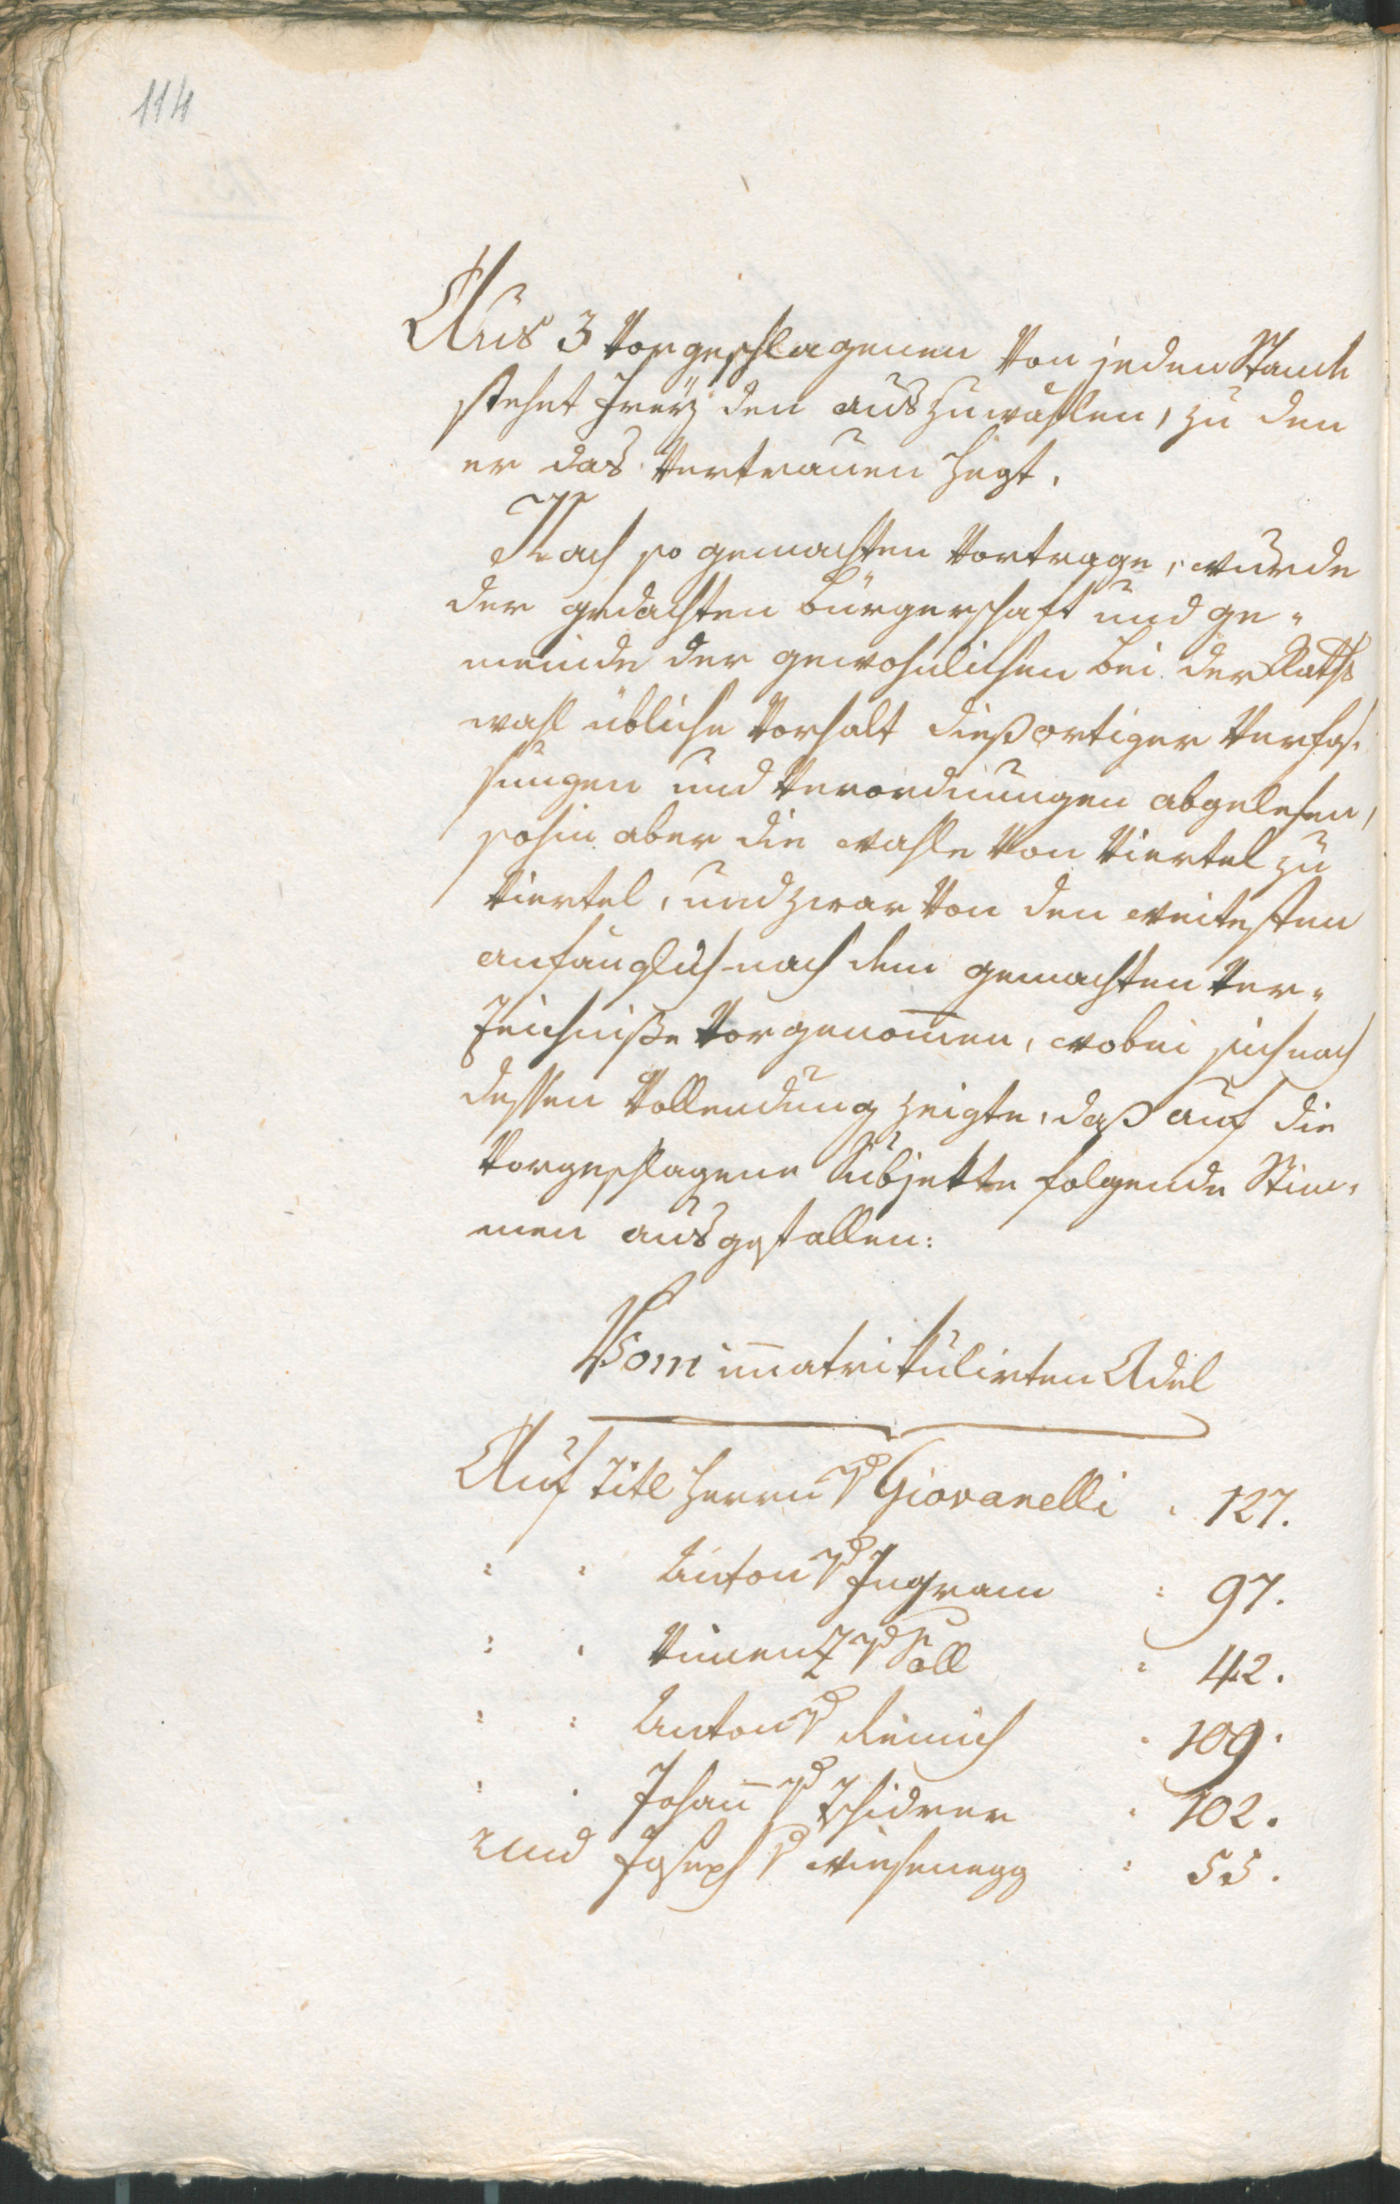 114
Aus 3 vorgeschlagenen von jeden Stande
stehet freÿ den auszuwählen, zu den
er das Vertrauen hegt.
Nach so gemachten Vortrage, wurde
der gedachten Bürgerschaft und ge-
meinde der gewohnlichen bei der Raths
wahl übliche Vorhalt diesortiger Verfas-
sungen und Verordnungen abgelesen,
sohin aber die Wahle von Viertel zu
Viertel, und zwar von den weitesten
anfänglich nach dem gemachten Ver-
zeichniße vorgenommen, wobei sich nach
dessen Vollendung zeigte, daß auf die
vorgeschlagene Subjekte folgende Stim-
men ausgefallen:
Vom immatrikulirten Adel
Auf Titl Herrn v Giovanelli : 127.
: : Anton v Ingram : 97.
: : Vincenz v Söll : 42.
: : Anton v Remich : 109.
: : Johann v Tschidrer : 102.
Und Joseph v Wiesenegg : 55.